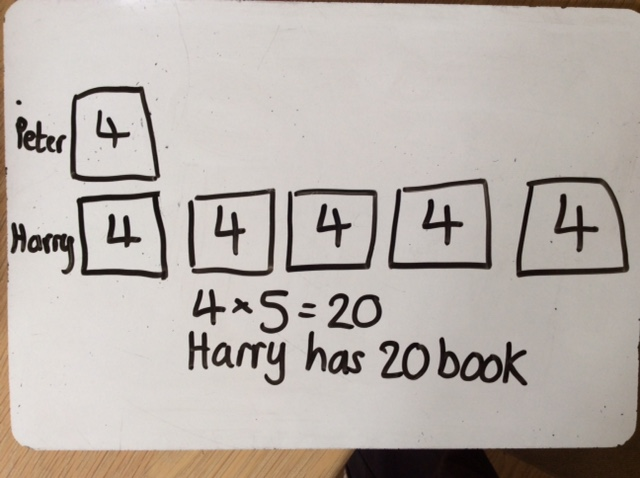 Peter 4
Harry 4 4 4 4 4
4 × 5 = 20
Harry has 20 book